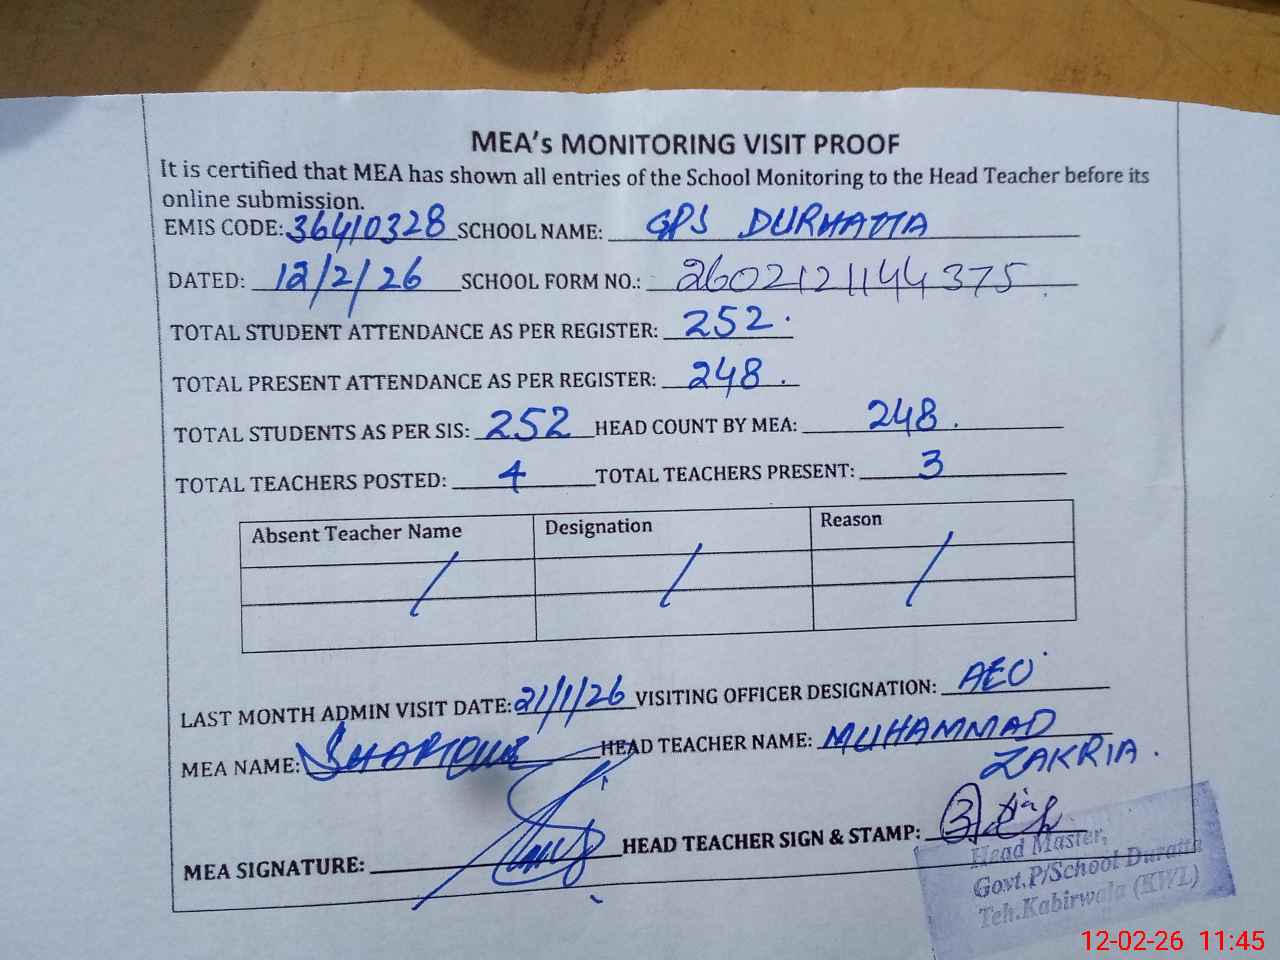 MEA's MONITORING VISIT PROOF
It is certified that MEA has shown all entries of the School Monitoring to the Head Teacher before its
online submission.
EMIS CODE: 36410328 SCHOOL NAME: GPS DURHATTA
DATED: 12/2/26 SCHOOL FORM NO.: 2602121144375
TOTAL STUDENT ATTENDANCE AS PER REGISTER: 252.
TOTAL PRESENT ATTENDANCE AS PER REGISTER: 248.
TOTAL STUDENTS AS PER SIS: 252 HEAD COUNT BY MEA: 248.
TOTAL TEACHERS POSTED: 4 TOTAL TEACHERS PRESENT: 3
Absent Teacher Name Designation Reason
/ / /
LAST MONTH ADMIN VISIT DATE: 21/1/26 VISITING OFFICER DESIGNATION: AEO
MEA NAME: HEAD TEACHER NAME: MUHAMMAD
ZAKRIA.
MEA SIGNATURE: HEAD TEACHER SIGN & STAMP: 3
Head Master,
Govt.P/School Duratta
Teh.Kabirwala (KWL)
12-02-26 11:45